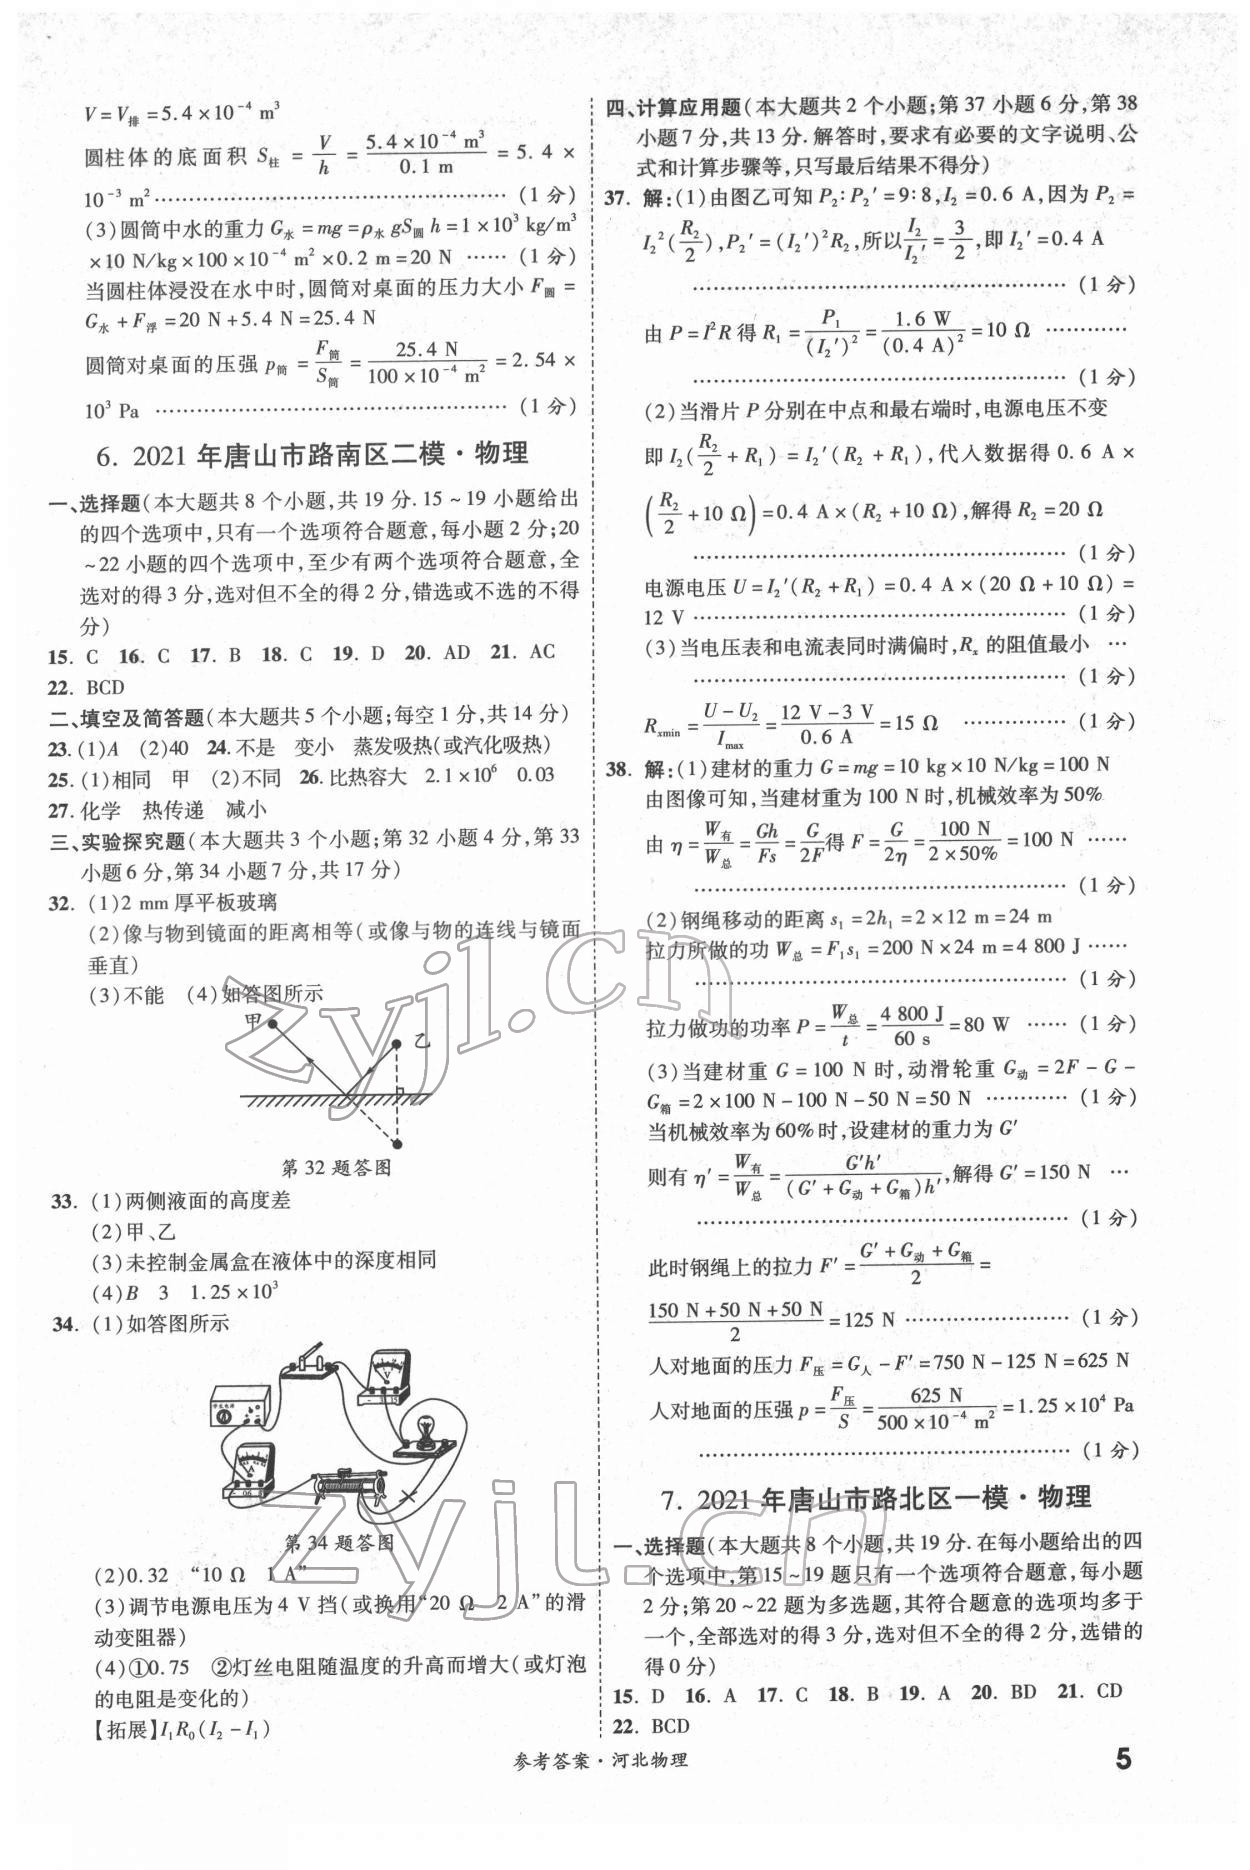 V=V排=5.4×10⁻⁴ m³
圆柱体的底面积 S柱 = V/h = 5.4×10⁻⁴ m³/0.1 m = 5.4 ×
10⁻³ m²……………………………………(1 分)
(3)圆筒中水的重力 G水 =mg=ρ水 gS圆 h=1×10³ kg/m³
×10 N/kg×100×10⁻⁴ m²×0.2 m=20 N ……(1 分)
当圆柱体浸没在水中时,圆筒对桌面的压力大小 F圆 =
G水 +F浮 =20 N+5.4 N=25.4 N
圆筒对桌面的压强 p筒 = F筒/S筒 = 25.4 N/(100×10⁻⁴ m²) =2.54 ×
10³ Pa ……………………………………(1 分)
6. 2021 年唐山市路南区二模·物理
一、选择题(本大题共 8 个小题,共 19 分.15～19 小题给出
的四个选项中,只有一个选项符合题意,每小题 2 分;20
～22 小题的四个选项中,至少有两个选项符合题意,全
选对的得 3 分,选对但不全的得 2 分,错选或不选的不得
分)
15. C 16. C 17. B 18. C 19. D 20. AD 21. AC
22. BCD
二、填空及简答题(本大题共 5 个小题;每空 1 分,共 14 分)
23.(1)A (2)40 24.不是 变小 蒸发吸热(或汽化吸热)
25.(1)相同 甲 (2)不同 26.比热容大 2.1×10⁶ 0.03
27.化学 热传递 减小
三、实验探究题(本大题共 3 个小题;第 32 小题 4 分,第 33
小题 6 分,第 34 小题 7 分,共 17 分)
32. (1)2 mm 厚平板玻璃
(2)像与物到镜面的距离相等(或像与物的连线与镜面
垂直)
(3)不能 (4)如答图所示
甲
乙
第 32 题答图
33. (1)两侧液面的高度差
(2)甲、乙
(3)未控制金属盒在液体中的深度相同
(4)B 3 1.25×10³
34. (1)如答图所示
V
A
第 34 题答图
(2)0.32 “10 Ω 1 A”
(3)调节电源电压为 4 V 挡(或换用“20 Ω 2 A”的滑
动变阻器)
(4)①0.75 ②灯丝电阻随温度的升高而增大(或灯泡
的电阻是变化的)
【拓展】I₁R₀(I₂－I₁)
四、计算应用题(本大题共 2 个小题;第 37 小题 6 分,第 38
小题 7 分,共 13 分.解答时,要求有必要的文字说明、公
式和计算步骤等,只写最后结果不得分)
37. 解:(1)由图乙可知 P₂∶P₂′=9∶8,I₂=0.6 A,因为 P₂=
I₂²(R₂/2),P₂′=(I₂′)²R₂,所以I₂/I₂′=3/2,即 I₂′=0.4 A
……………………………………(1 分)
由 P=I²R 得 R₁=P₁/(I₂′)²=1.6 W/(0.4 A)²=10 Ω …………
……………………………………(1 分)
(2)当滑片 P 分别在中点和最右端时,电源电压不变
即 I₂(R₂/2+R₁)=I₂′(R₂+R₁),代人数据得 0.6 A ×
(R₂/2+10 Ω)=0.4 A×(R₂+10 Ω),解得 R₂=20 Ω
……………………………………(1 分)
电源电压 U=I₂′(R₂+R₁)=0.4 A×(20 Ω+10 Ω)=
12 V……………………………………(1 分)
(3)当电压表和电流表同时满偏时,Rₓ 的阻值最小 …
……………………………………(1 分)
Rxmin=(U－U₂)/Imax=(12 V－3 V)/0.6 A=15 Ω ……………(1 分)
38. 解:(1)建材的重力 G=mg=10 kg×10 N/kg=100 N
由图像可知,当建材重为 100 N 时,机械效率为 50%
由 η=W有/W总=Gh/Fs=G/2F得 F=G/2η=100 N/(2×50%)=100 N ……
……………………………………(1 分)
(2)钢绳移动的距离 s₁=2h₁=2×12 m=24 m
拉力所做的功 W总=F₁s₁=200 N×24 m=4 800 J……
……………………………………(1 分)
拉力做功的功率 P=W总/t=4 800 J/60 s=80 W ……(1 分)
(3)当建材重 G=100 N 时,动滑轮重 G动=2F－G－
G箱=2×100 N－100 N－50 N=50 N …………(1 分)
当机械效率为 60%时,设建材的重力为 G′
则有 η′=W有/W总=G′h′/(G′+G动+G箱)h′,解得 G′=150 N …
……………………………………(1 分)
此时钢绳上的拉力 F′=(G′+G动+G箱)/2=
(150 N+50 N+50 N)/2=125 N ………………(1 分)
人对地面的压力 F压=G人－F′=750 N－125 N=625 N
人对地面的压强 p=F压/S=625 N/(500×10⁻⁴ m²)=1.25×10⁴ Pa
……………………………………(1 分)
7. 2021 年唐山市路北区一模·物理
一、选择题(本大题共 8 个小题,共 19 分.在每小题给出的四
个选项中,第 15～19 题只有一个选项符合题意,每小题
2 分;第 20～22 题为多选题,其符合题意的选项均多于
一个,全部选对的得 3 分,选对但不全的得 2 分,选错的
得 0 分)
15. D 16. A 17. C 18. B 19. A 20. BD 21. CD
22. BCD
参考答案·河北物理
5
zyjl.cn
zyjl.cn